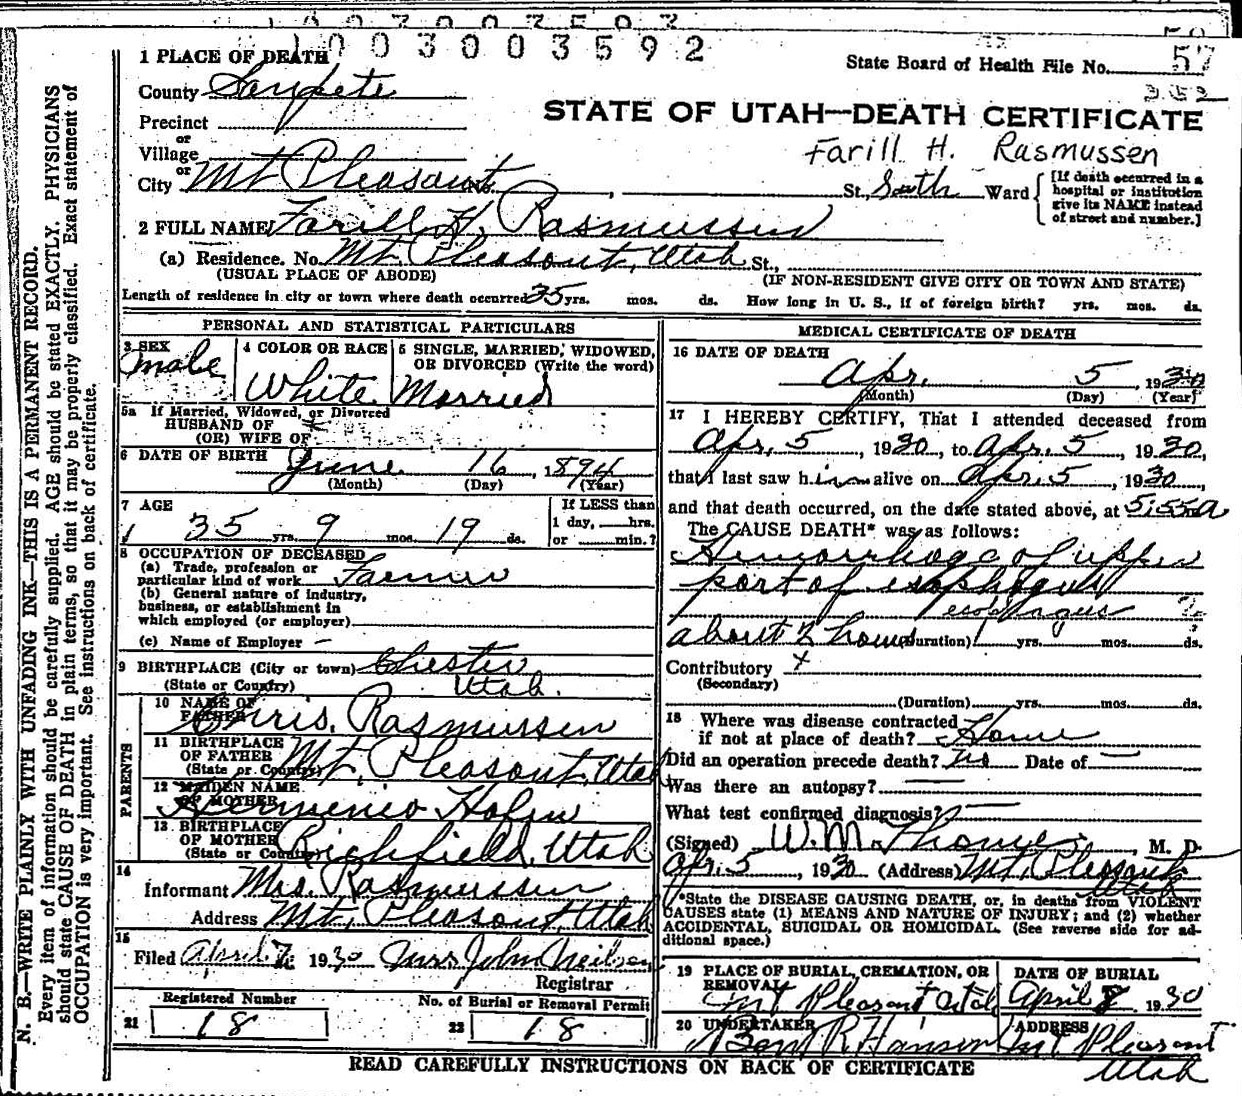 1003003592
57
State Board of Health File No.
352
1 PLACE OF DEATH
County Sanpete
STATE OF UTAH—DEATH CERTIFICATE
Precinct
or
Village
Farill H. Rasmussen
or
City Mt Pleasant, St., South Ward
[If death occurred in a hospital or institution give its NAME instead of street and number.]
2 FULL NAME Farill H. Rasmussen
(a) Residence. No. Mt. Pleasant, Utah St.,
(USUAL PLACE OF ABODE) (IF NON-RESIDENT GIVE CITY OR TOWN AND STATE)
Length of residence in city or town where death occurred 35 yrs. mos. ds. How long in U. S., if of foreign birth? yrs. mos. ds.
PERSONAL AND STATISTICAL PARTICULARS
3 SEX
male
4 COLOR OR RACE
White
5 SINGLE, MARRIED, WIDOWED,
OR DIVORCED (Write the word)
Married
5a If Married, Widowed, or Divorced
HUSBAND OF
(OR) WIFE OF
6 DATE OF BIRTH June 16, 1894
(Month) (Day) (Year)
7 AGE
35 yrs. 9 mos. 19 ds.
If LESS than
1 day, hrs.
or min.?
8 OCCUPATION OF DECEASED
(a) Trade, profession or
particular kind of work Farmer
(b) General nature of industry,
business, or establishment in
which employed (or employer)
(c) Name of Employer –
9 BIRTHPLACE (City or town) Chester
(State or Country) Utah.
PARENTS
10 NAME OF
FATHER Chris. Rasmussen
11 BIRTHPLACE
OF FATHER
(State or Country) Mt. Pleasant, Utah
12 MAIDEN NAME
OF MOTHER
13 BIRTHPLACE
OF MOTHER
(State or Country) Richfield, Utah
14
Informant Mrs. Rasmussen
Address Mt. Pleasant, Utah
15
Filed April 7, 1930 Mrs John Neilsen
Registrar
Registered Number
21 18
No. of Burial or Removal Permit
22 18
MEDICAL CERTIFICATE OF DEATH
16 DATE OF DEATH
Apr. 5, 1930
(Month) (Day) (Year)
17 I HEREBY CERTIFY, That I attended deceased from
Apr. 5, 1930, to Apr. 5, 1930,
that I last saw him alive on Apr. 5, 1930,
and that death occurred, on the date stated above, at 5:55 a
The CAUSE DEATH* was as follows:
Hemorrhage of upper
part of esophagus
about 2 hours (duration) yrs. mos. ds.
Contributory x
(Secondary)
(Duration) yrs. mos. ds.
18 Where was disease contracted
if not at place of death? Home
Did an operation precede death? No Date of —
Was there an autopsy? —
What test confirmed diagnosis? —
(Signed) W. M. , M. D.
Apr. 5, 1930 (Address) Mt. Pleasant
Utah
*State the DISEASE CAUSING DEATH, or, in deaths from VIOLENT
CAUSES state (1) MEANS AND NATURE OF INJURY; and (2) whether
ACCIDENTAL, SUICIDAL OR HOMICIDAL. (See reverse side for ad-
ditional space.)
19 PLACE OF BURIAL, CREMATION, OR
REMOVAL
Mt Pleasant Utah
DATE OF BURIAL
April 8 1930
20 UNDERTAKER
R Hansen
ADDRESS
Mt Pleasant
Utah
READ CAREFULLY INSTRUCTIONS ON BACK OF CERTIFICATE
N. B.—WRITE PLAINLY WITH UNFADING INK—THIS IS A PERMANENT RECORD.
Every item of information should be carefully supplied. AGE should be stated EXACTLY. PHYSICIANS
should state CAUSE OF DEATH in plain terms, so that it may be properly classified. Exact statement of
OCCUPATION is very important. See instructions on back of certificate.